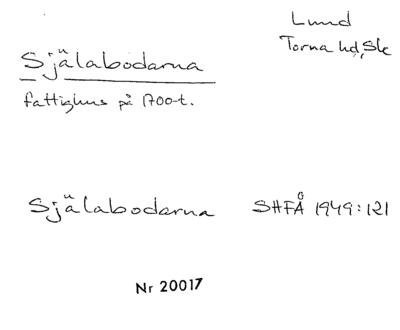 Lund
Torna hd, Sk
Själabodarna
fattighus på 1700-t.
Själabodarna SHFÅ 1949:121
Nr 20017